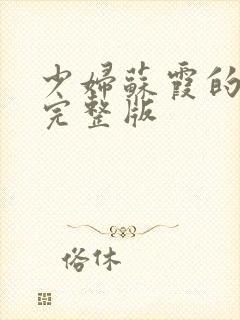 少婦蘇霞的
完整版
俗休